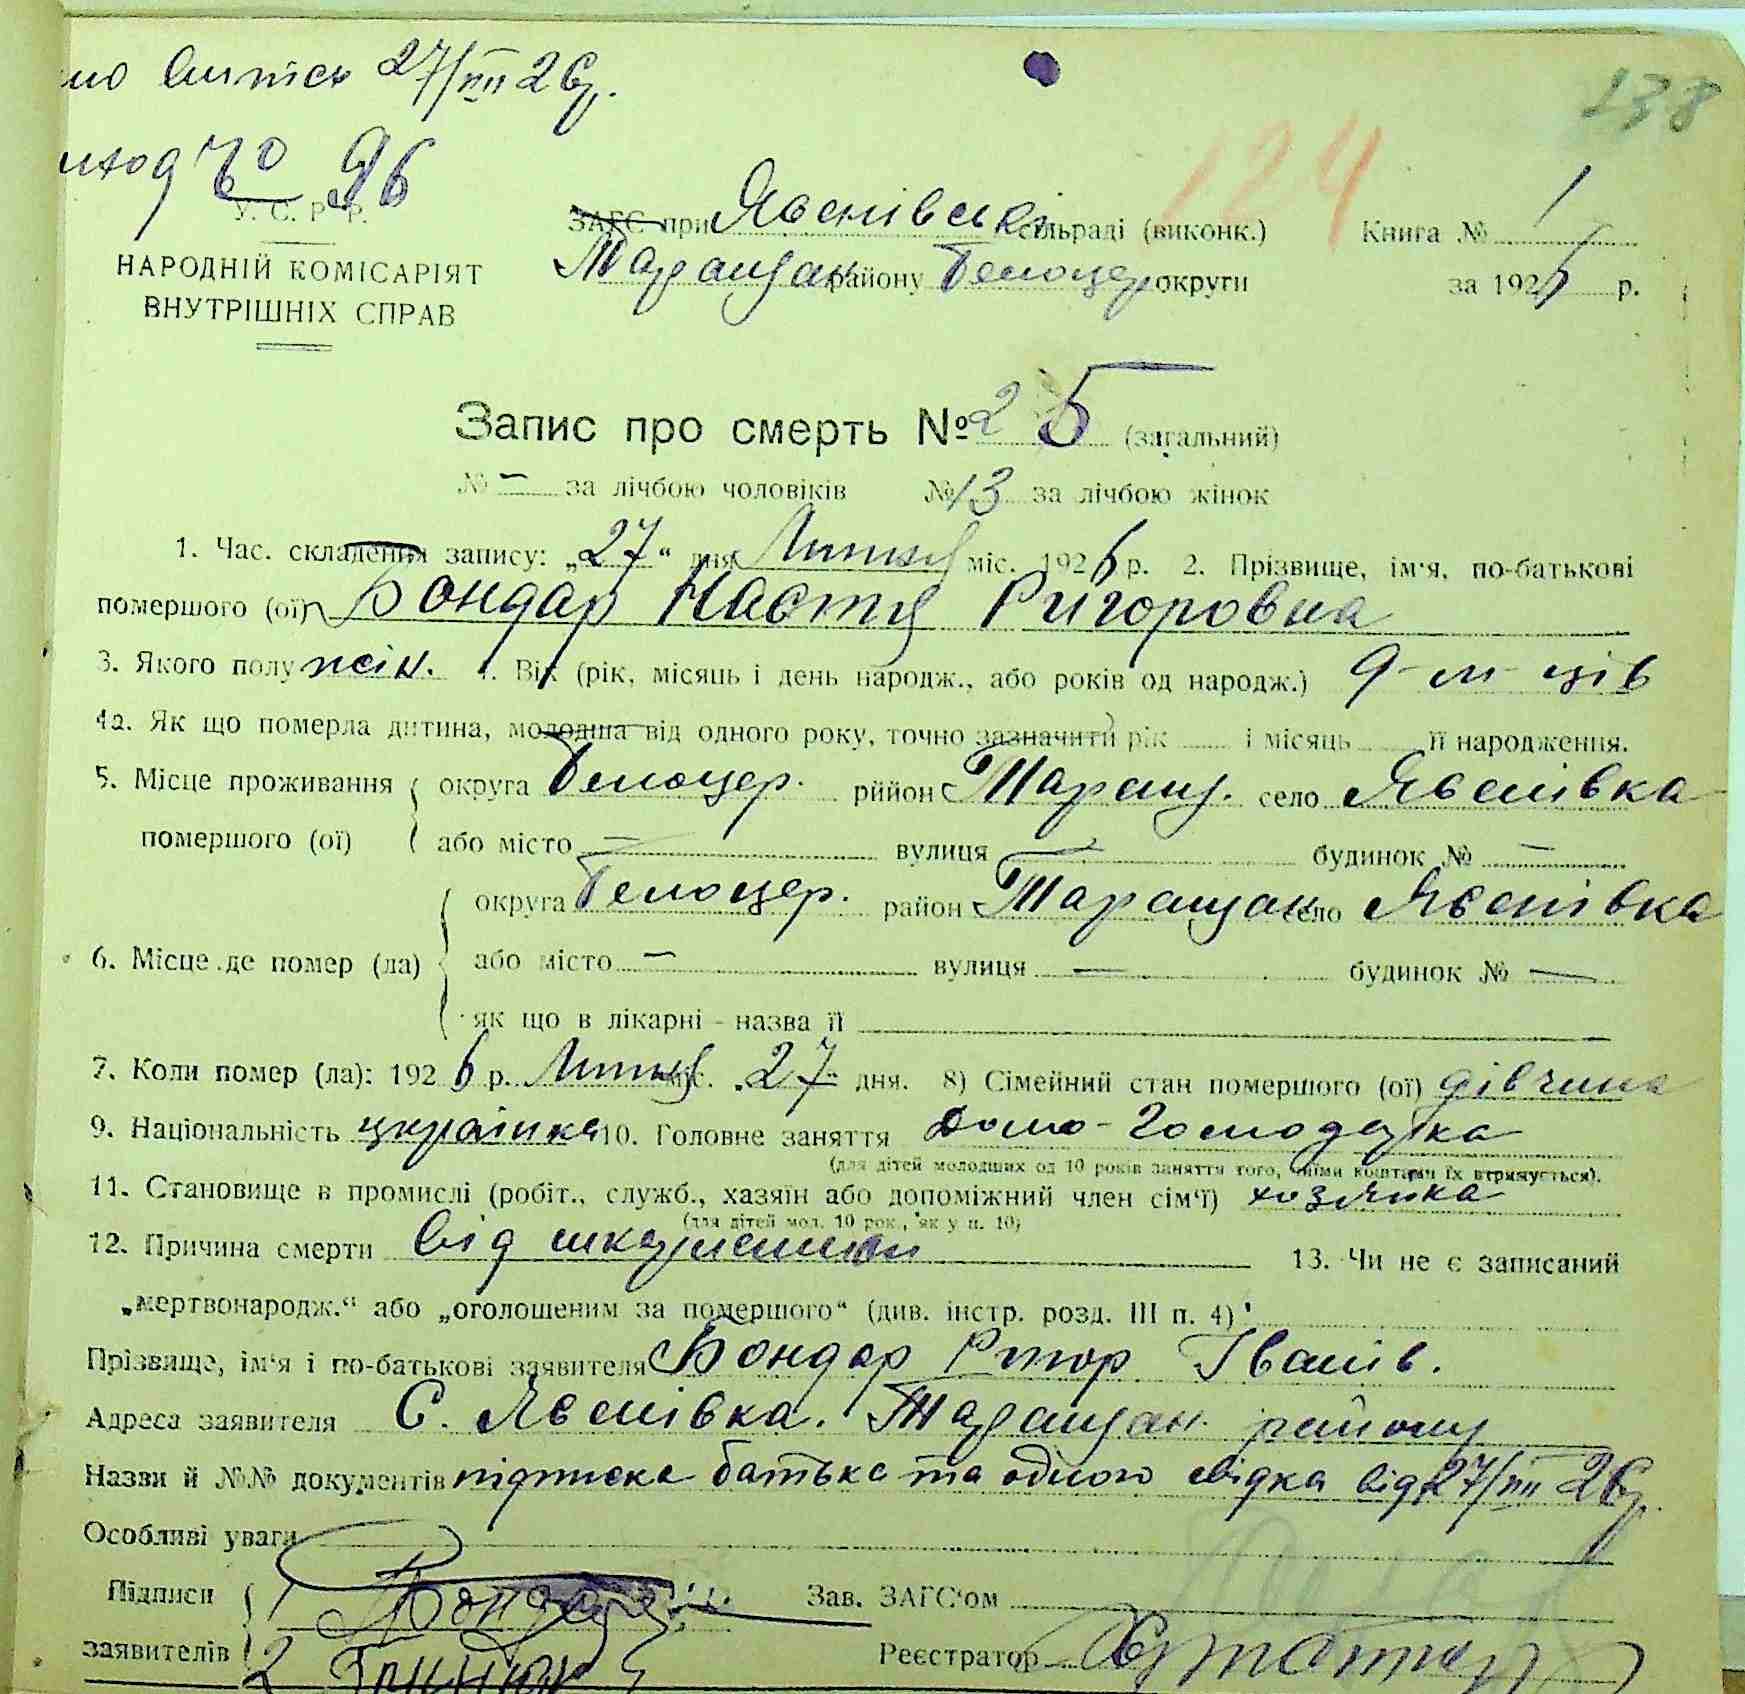 но витіс 27/VII 26р.
138
изход № 96
124
У. С. Р. Р.
ЗАГС при Явенівські сільраді (виконк.) Книга № 1
НАРОДНІЙ КОМІСАРІЯТ
Таращан району Білоцер округи за 1926 р.
ВНУТРІШНІХ СПРАВ
Запис про смерть № 25 (загальний)
№ – за лічбою чоловіків № 13 за лічбою жінок
1. Час. складення запису: „27" дня Липня міс. 1926 р. 2. Прізвище, ім'я, по-батькові
помершого (ої) Бондар Настя Ригоровна
3. Якого полу жін. 4. Вік (рік, місяць і день народж., або років од народж.) 9-м-ців
4а. Як що померла дитина, молодша від одного року, точно зазначити рік і місяць її народження.
5. Місце проживання округа Білоцер. район Таращ. село Явенівка
помершого (ої) або місто — вулиця — будинок № —
округа Білоцер. район Таращан село Явенівка
6. Місце де помер (ла) або місто — вулиця — будинок № —
як що в лікарні - назва її
7. Коли помер (ла): 1926 р. Липня міс. „27" дня. 8) Сімейний стан помершого (ої) дівчина
9. Національність українка 10. Головне заняття Домо-Господарка
(для дітей молодших од 10 років заняття того, чиїми коштами їх втримується).
11. Становище в промислі (робіт., служб., хазяїн або допоміжний член сім'ї) хозяйка
(для дітей мол. 10 рок., як у п. 10)
12. Причина смерти від шкарлятини 13. Чи не є записаний
„мертвонародж." або „оголошеним за помершого" (див. інстр. розд. III п. 4)
Прізвище, ім'я і по-батькові заявителя Бондар Ригор Іванів.
Адреса заявителя С. Явенівка. Таращан. району
Назви й №№ документів підписка батька та одного свідка від 27/VII 26р.
Особливі уваги
Підписи 1 Бондар Зав. ЗАГС'ом
заявителів 2 Реєстратор